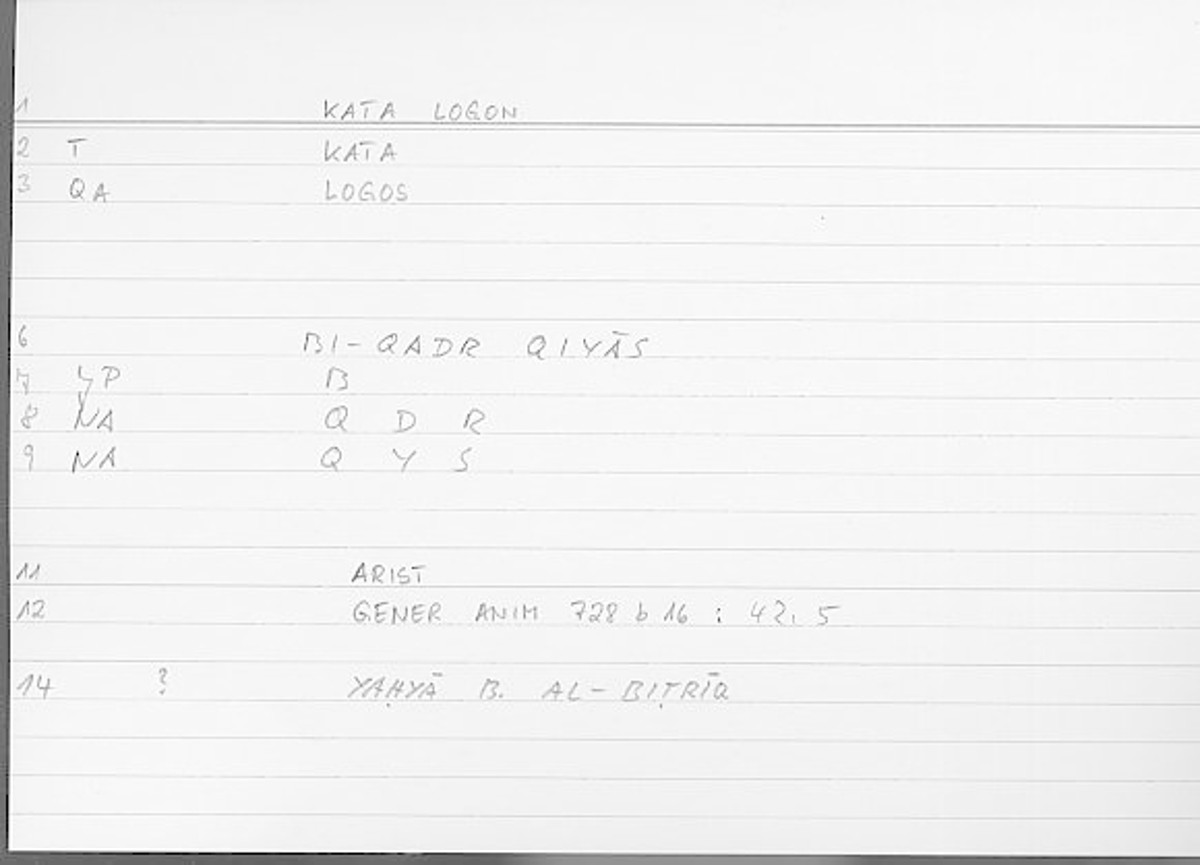 1 KATA LOGON
2 T KATA
3 QA LOGOS
6 BI-QADR QIYĀS
7 B
8 NA Q D R
9 NA Q Y S
11 ARIST
12 GENER ANIM 728 b 16 : 42. 5
14 ? YAḤYĀ B. AL-BIṬRĪQ